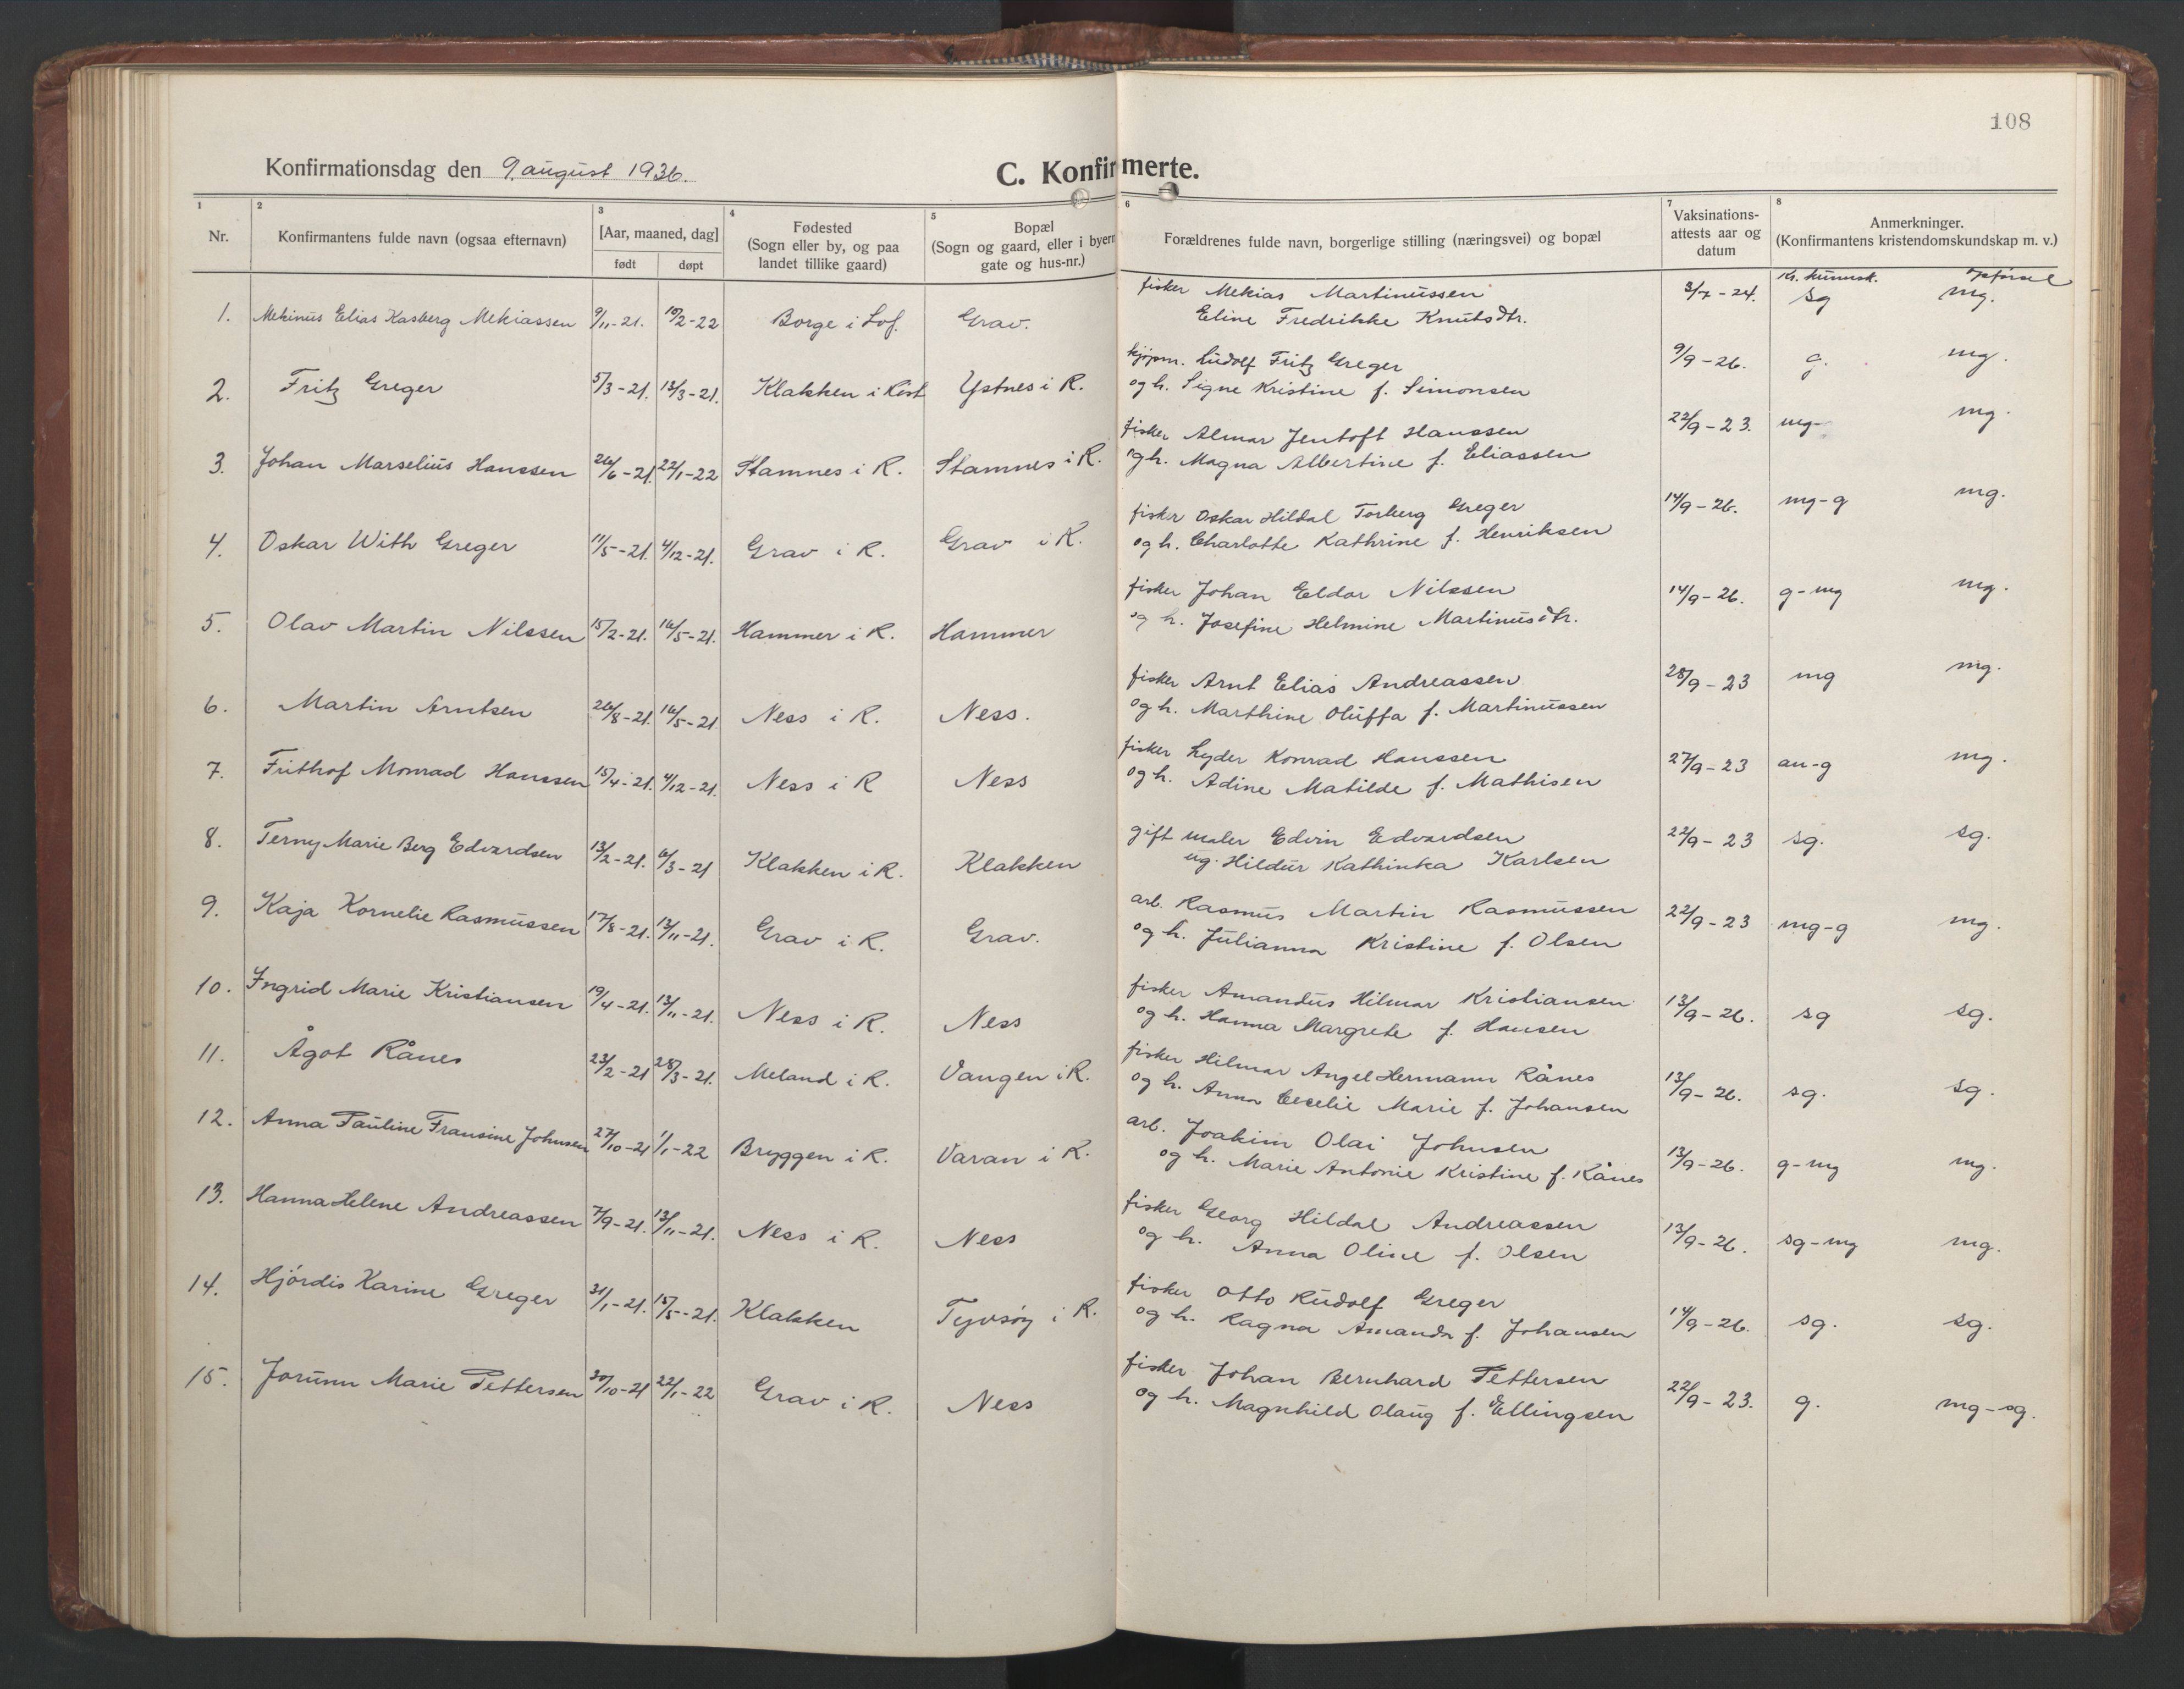 108
Konfirmationsdag den 9. august 1936.
C. Konfirmerte.
1 2 3 4 5 6 7 8
Nr.
Konfirmantens fulde navn (ogsaa efternavn)
[Aar, maaned, dag]
født døpt
Fødested
(Sogn eller by, og paa
landet tillike gaard)
Bopæl
(Sogn og gaard, eller i byern
gate og hus-nr.)
Forældrenes fulde navn, borgerlige stilling (næringsvei) og bopæl
Vaksinations-
attests aar og
datum
Anmerkninger.
(Konfirmantens kristendomskundskap m. v.)
Kr. kunnsk. opførsel
1. Mekinus Elias Kasberg Mekiassen 9/11-21. 19/2-22 Borge i Lof. Grav. fisker Mekias Martinussen 3/7-24. sg mg.
Eline Fredrikke Knutsdtr.
2. Fritz Greger 5/3-21. 13/3-21. Klakken i Røst Ystnes i R. kjøpm. Ludolf Fritz Greger 9/9-26. g. mg.
og h. Signe Kristine f. Simonsen
3. Johan Marselius Hanssen 26/6-21. 22/1-22 Stamnes i R. Stamnes i R. fisker Almar Jentoft Hanssen 22/9-23. mg- mg.
og h. Magna Albertine f. Eliassen
4. Oskar With Greger 11/5-21. 4/12-21. Grav i R. Grav i R. fisker Oskar Hildal Torberg Greger 14/9-26. mg-g mg.
og h. Charlotte Kathrine f. Henriksen
5. Olav Martin Nilssen 15/2-21. 16/5-21. Hammer i R. Hammer fisker Johan Eldor Nilssen 14/9-26. g-mg mg.
og h. Josefine Helmine Martinusdtr.
6. Martin Arntsen 26/8-21. 16/5-21 Ness i R. Ness. fisker Arnt Elias Andreassen 28/9-23 mg mg.
og h. Marthine Oluffa f. Martinussen
7. Frithof Monrad Hanssen 15/4-21. 4/12-21. Ness i R Ness fisker Lyder Konrad Hanssen 27/9-23 au-g mg.
og h. Adine Matilde f. Mathisen
8. Terny Marie Berg Edvardsen 13/2-21. 6/3-21 Klakken i R. Klakken gift maler Edvin Edvardsen 22/9-23 sg. sg.
ug. Hildur Kathinka Karlsen
9. Kaja Kornelie Rasmussen 17/8-21. 13/11-21. Grav i R. Grav. arb. Rasmus Martin Rasmussen 22/9-23 mg-g mg.
og h. Julianna Kristine f. Olsen
10. Ingrid Marie Kristiansen 19/4-21. 13/11-21. Ness i R. Ness fisker Amandus Hilmar Kristiansen 13/9-26. sg sg.
og h. Hanna Margrete f. Hansen
11. Ågot Rånes 23/2-21 28/3-21. Meland i R. Vangen i R. fisker Hilmar Angel Hermann Rånes 13/9-26. sg. sg.
og h. Anna Cecelie Marie f. Johansen
12. Anna Pauline Fransine Johnsen 27/10-21 1/1-22 Bryggen i R. Varan i R. arb. Joakim Olai Johnsen 13/9-26. g-mg mg.
og h. Marie Antonie Kristine f. Rånes
13. Hanna Helene Andreassen 7/9-21. 13/11-21. Ness i R. Ness fisker Georg Hildal Andreassen 13/9-26. sg-mg mg.
og h. Anna Oline f. Olsen
14. Hjördis Karine Greger 31/1-21. 15/5-21. Klakken Tyvsøy i R. fisker Otto Rudolf Greger 14/9-26. sg. sg.
og h. Ragna Amanda f. Johansen
15. Jorunn Marie Pettersen 30/10-21 22/1-22 Grav i R. Ness fisker Johan Bernhard Pettersen 22/9-23. g. mg-sg.
og h. Magnhild Olaug f. Ellingsen